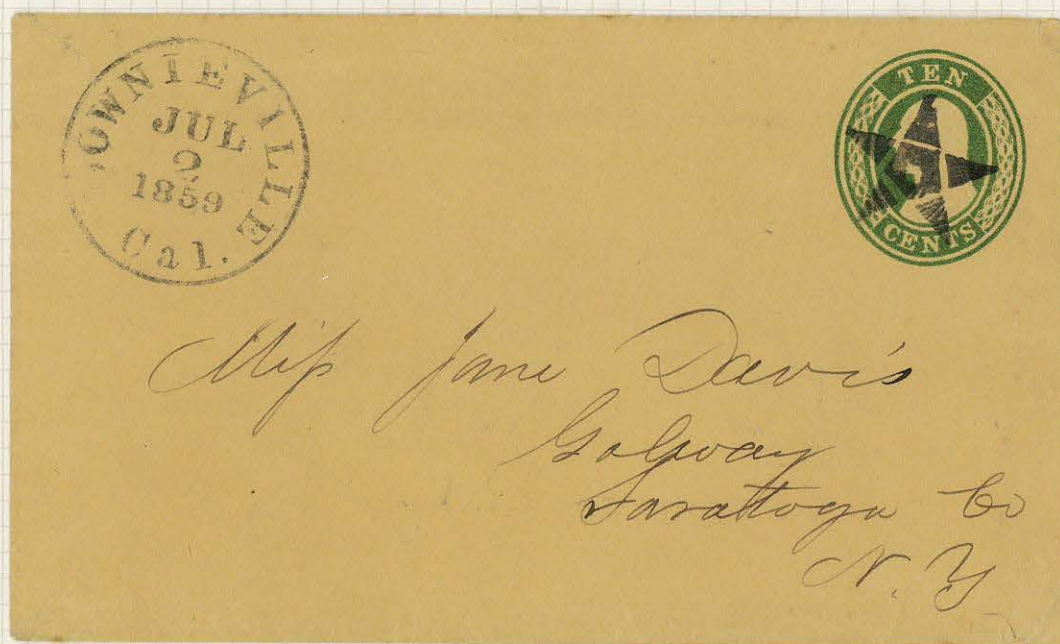 OWNIEVILLE
JUL
2
1859
Cal.
TEN
CENTS
Miſs Jane Davis
Galway
Saratoga Co
N. Y.